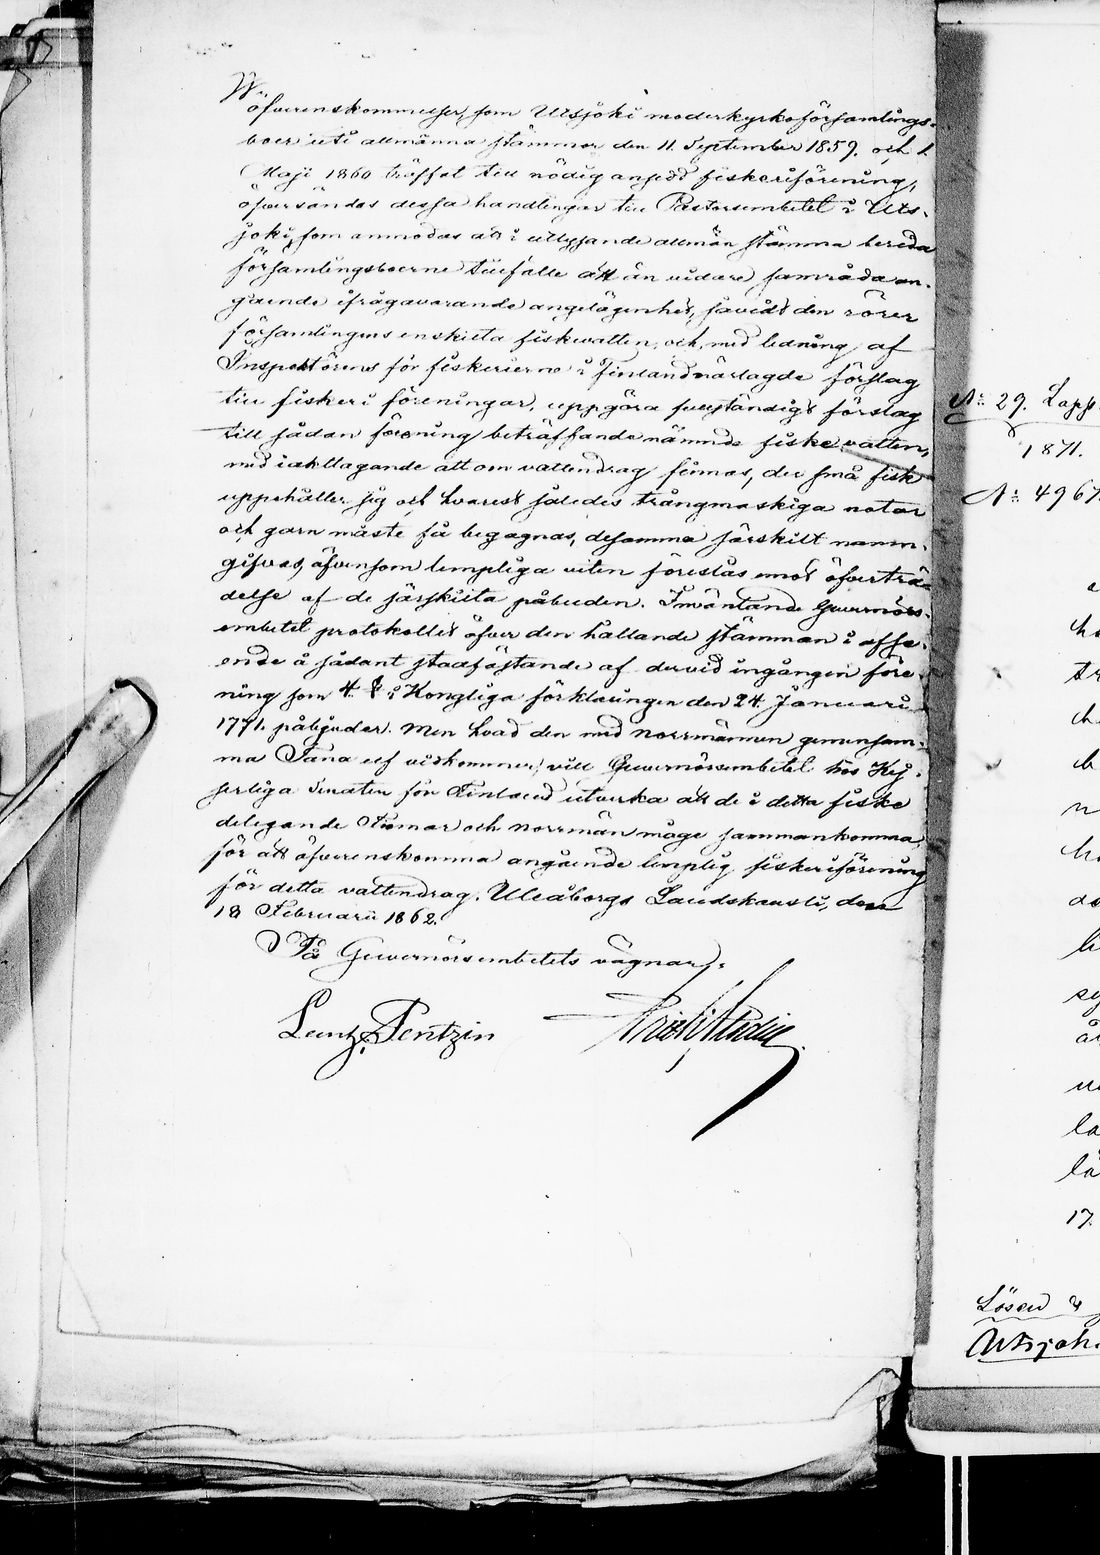 öfverenskommelser, som Utsjoki moderkyrkoförsamlings-
boer uti allmänna stämmor den 11. September 1859. och 1.
Maji 1860 träffat till nödig ansedd fiskeriförening,
öfversändas dessa handlingar till Pastorsembetet i Uts-
joki, som anmodas att i utlysande allmän stämma bereda
församlingsboerne tillfälle att än vidare samråda an-
gående ifrågavarande angelägenhet, såvidt den rörer
församlingens enskilta fiskevatten, och, med ledning af
Inspektörens för fiskerierne i Finland närlagde förslag
till fiskeri föreningar, uppgöra fullständigt förslag
till sådan förening beträffande nämnde fiskevatten,
med iakttagande att om vattendrag finnas, der små fisk
uppehåller sig och hvarest således trångmaskiga notar
och garn måste få begagnas, desamma särskilt namn-
gifvas, äfvensom lempliga viten föreslås emot öfverträ-
delse af de särskilta påbuden. Inväntande Guvernörs-
embetet protokollet öfver den hållande stämman i afse-
ende å sådant stadfästande af dervid ingången före-
ning som 4. § i Kongliga förklaringen den 24 Januari
1771. påbjuder. Men hvad den med Norrmännen gemensam-
ma Tana elf vidkommer, vill Guvernörsembetet hos Kej-
serliga Senaten för Finland utverka att de i detta fiske
delegande Finnar och Norrmän måge sammankomma,
för att öfverenskomma angående lemplig fiskeriförening
för detta vattendrag. Uleåborgs Landskansli, den
18 Februarii 1862.
På Guvernörsembetets vägnar:
Lentz Pentzin
N: 29. Lapp
1871.
N: 4967.
17.
Lösen
Utsjoki